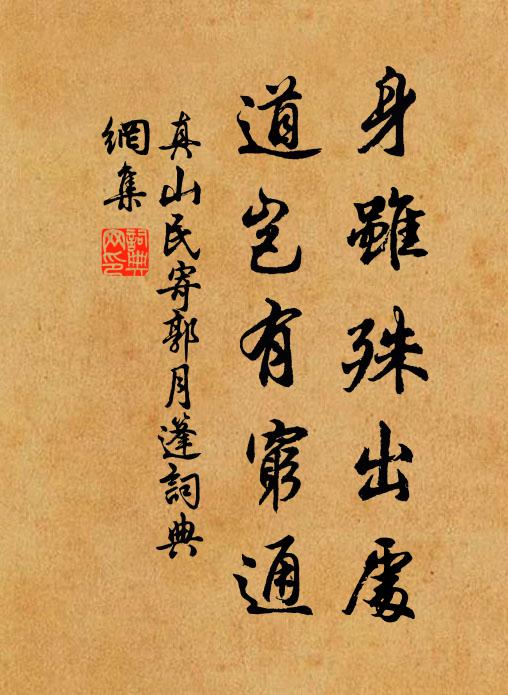 身雖殊出處
道豈有窮通
真山民寄郭月蓬詞典
網集
詞典網印